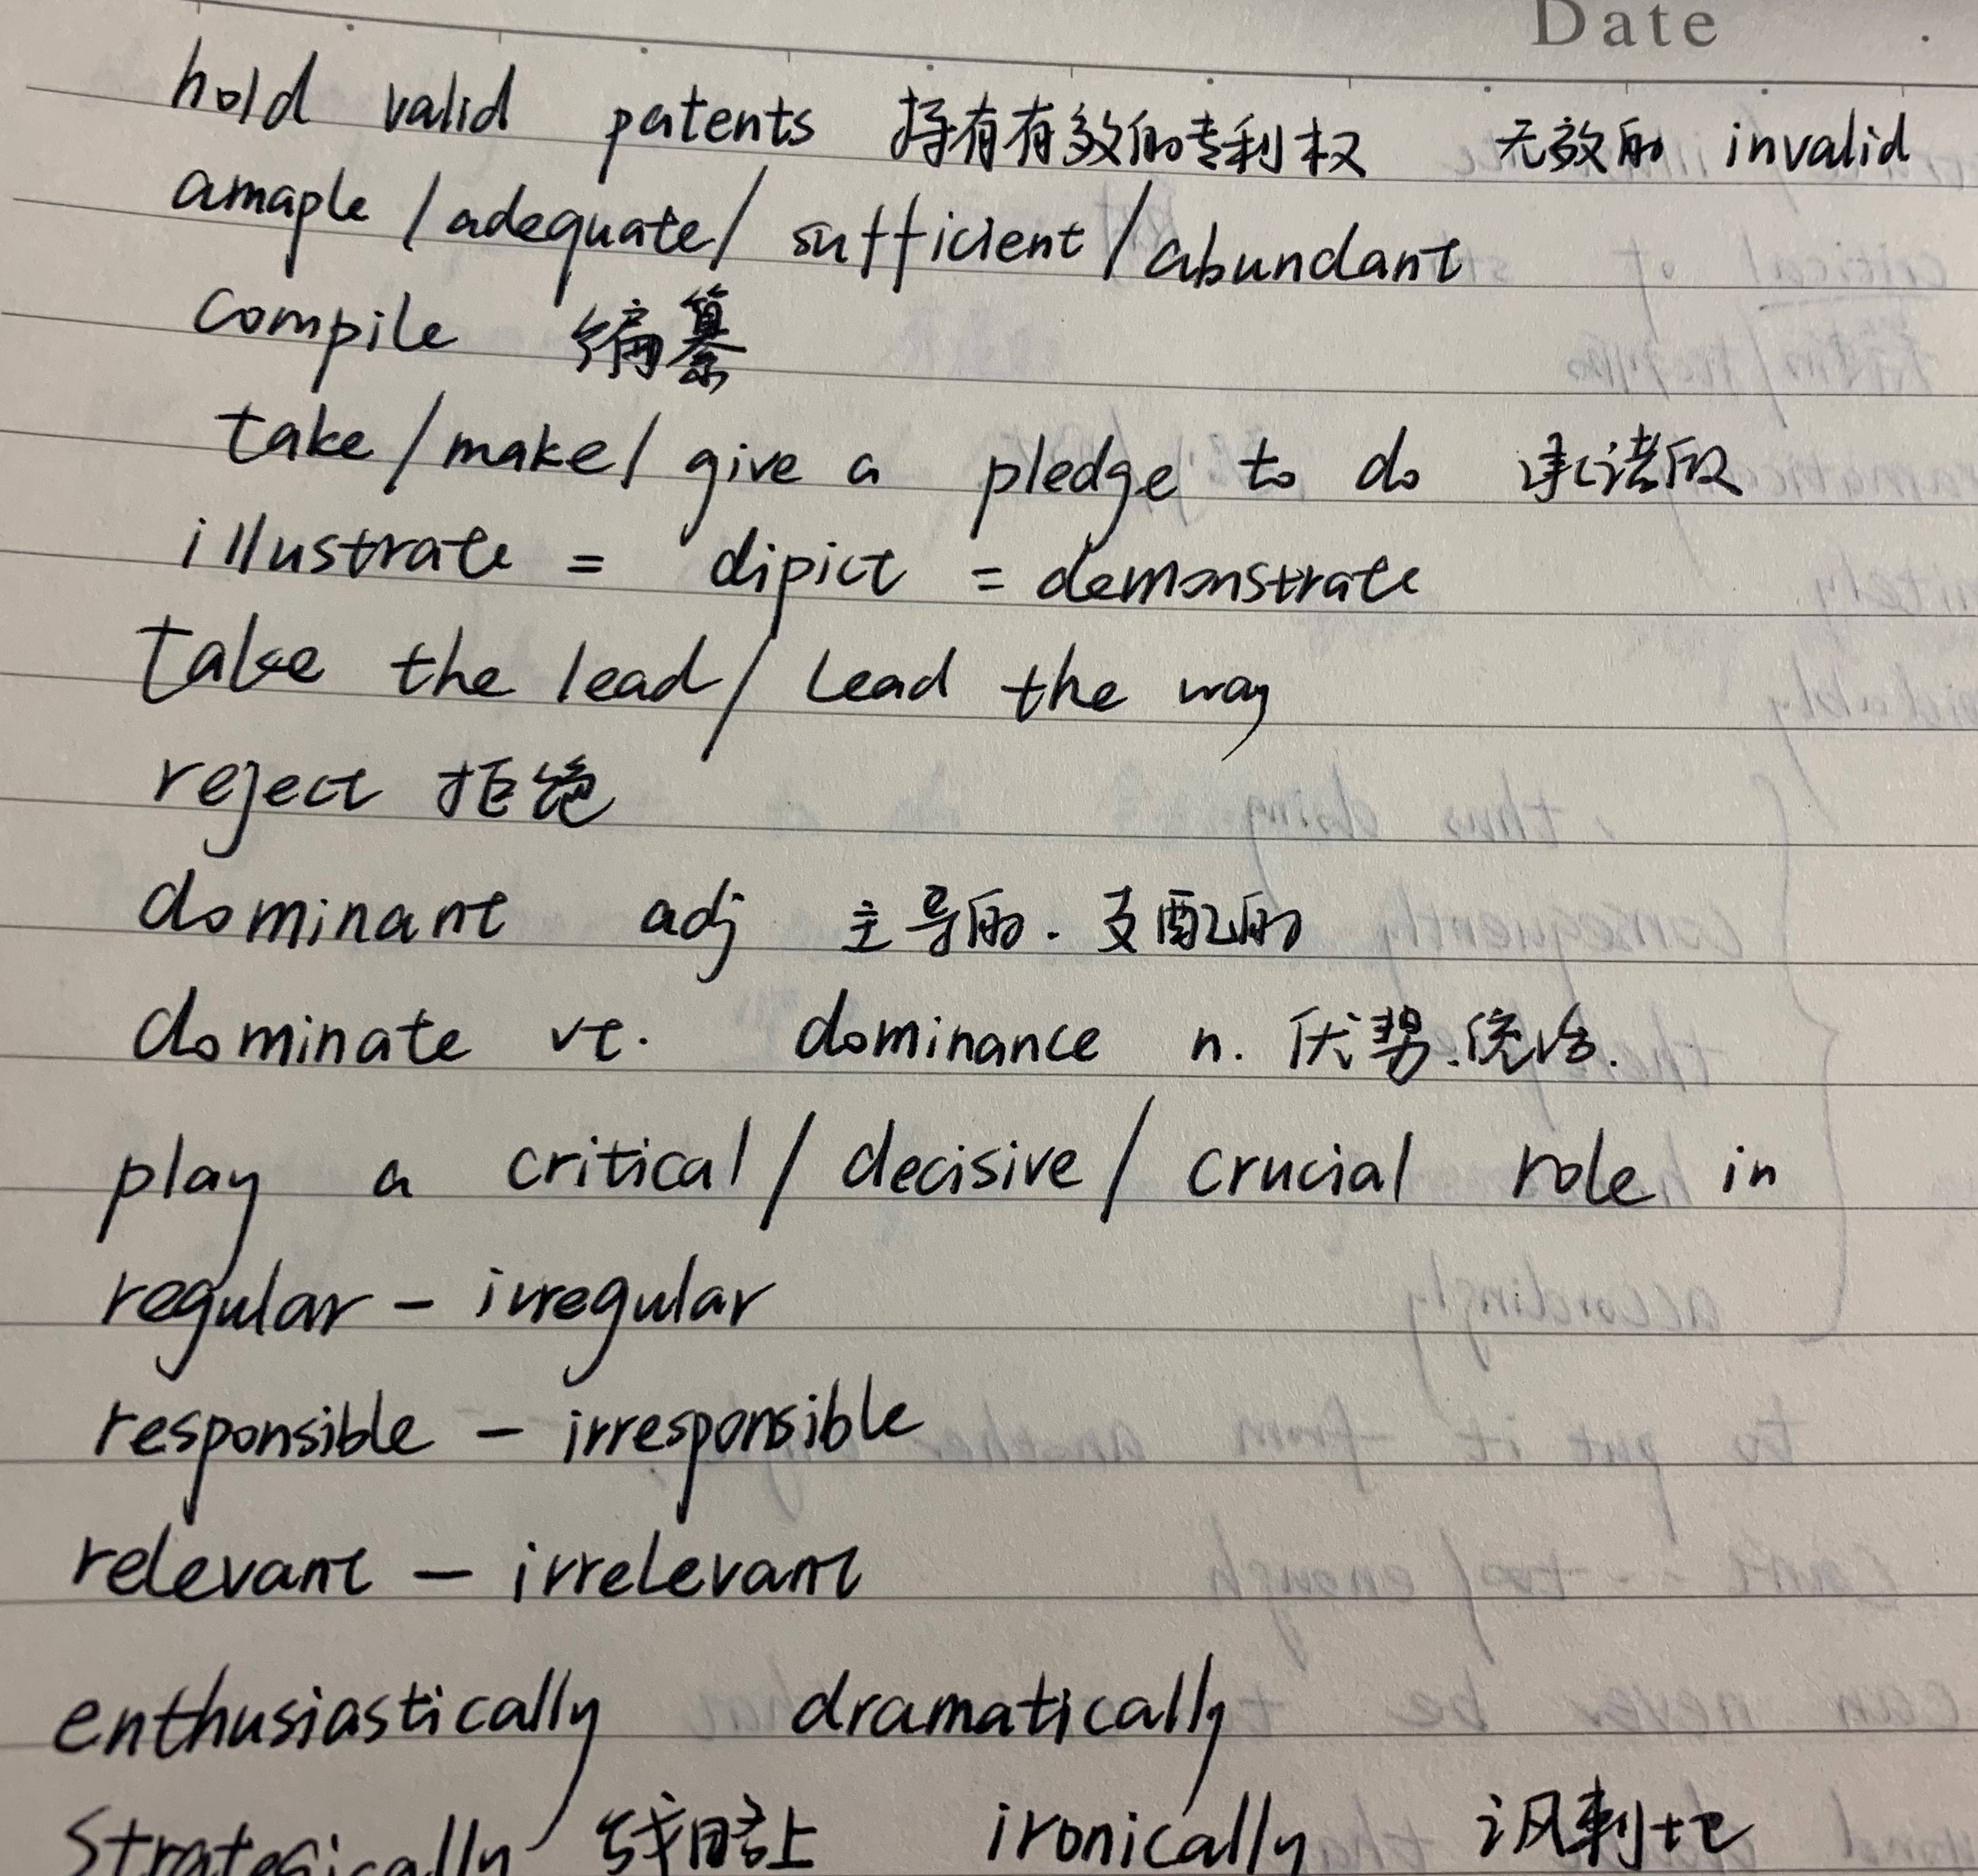 Date
hold valid patents 持有有效的专利权 无效的 invalid
amaple / adequate / sufficient / abundant
compile 编纂
take / make / give a pledge to do 承诺做
illustrate = dipict = demonstrate
take the lead / lead the way
reject 拒绝
dominant adj 主导的. 支配的
dominate vt. dominance n. 优势.统治.
play a critical / decisive / crucial role in
regular - irregular
responsible - irresponsible
relevant - irrelevant
enthusiastically dramatically
strategically 战略上 ironically 讽刺地